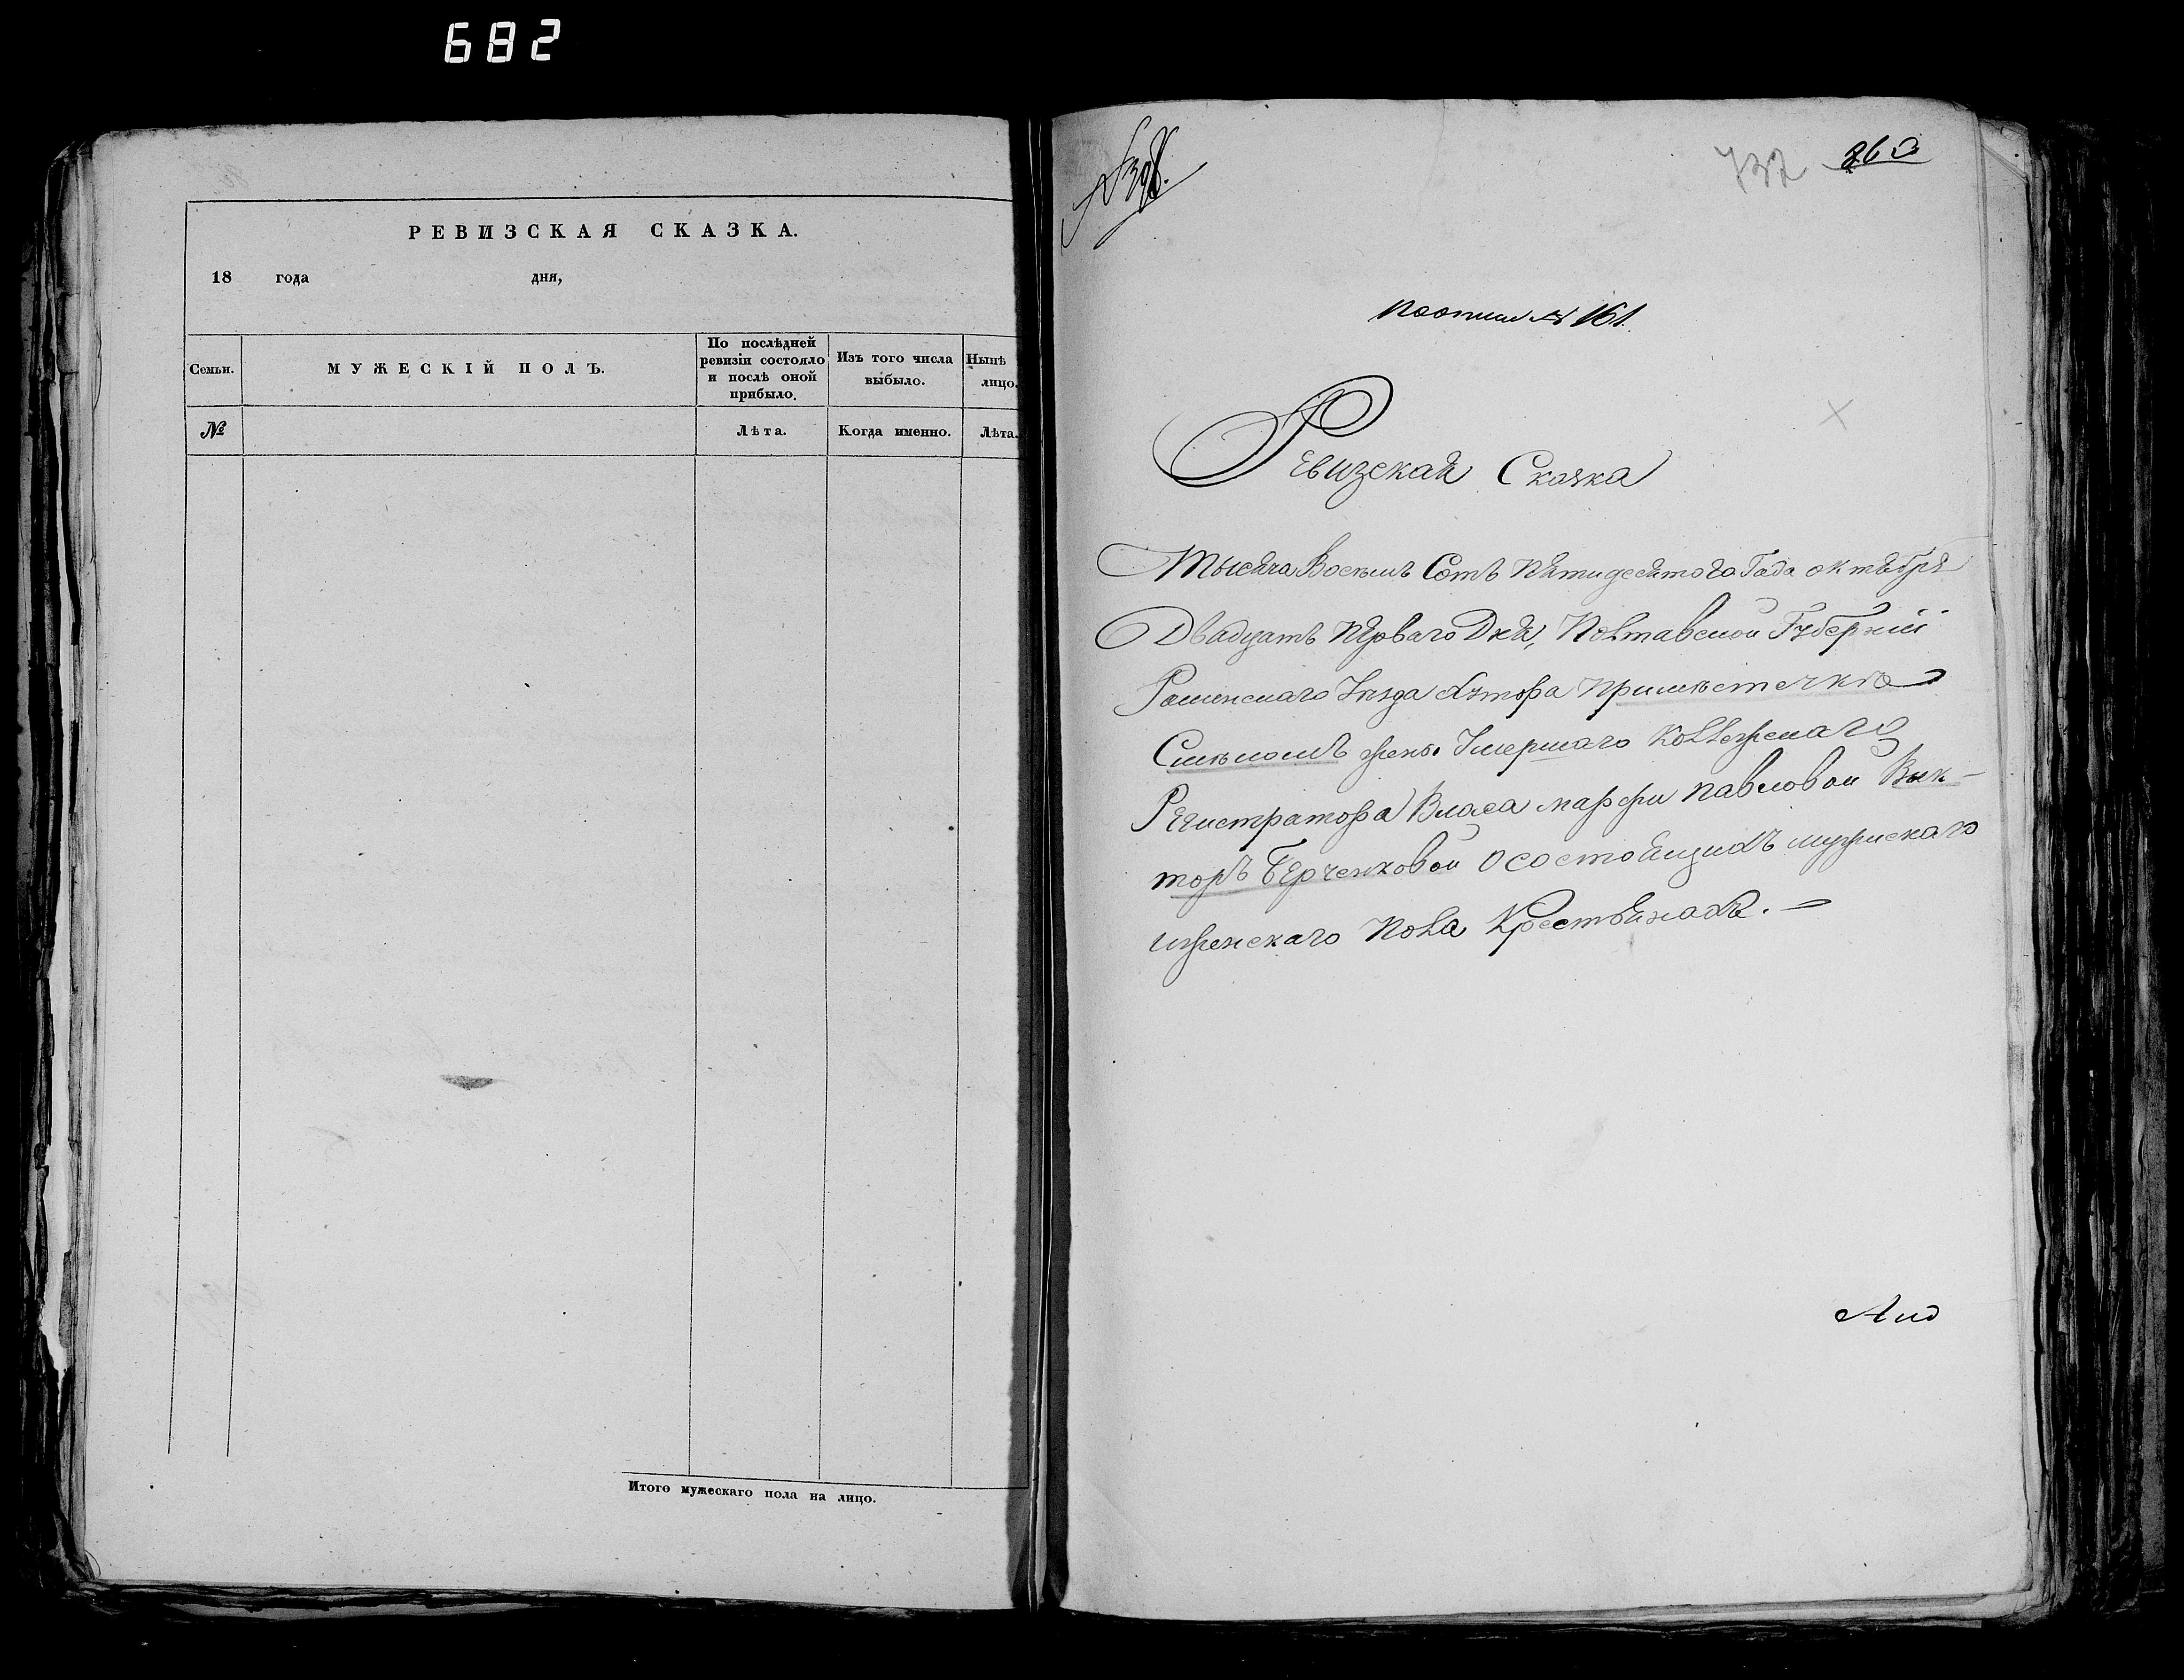 682
РЕВИЗСКАЯ СКАЗКА.
18 года дня,
Семьи.
МУЖЕСКІЙ ПОЛЪ.
По послѣдней
ревизіи состояло
и послѣ оной
прибыло.
Изъ того числа
выбыло.
Нынѣ
лицо.
№
Лѣта.
Когда именно.
Лѣта.
Итого мужескаго пола на лицо.
737
№ 161.
Ревизская Сказка
Тысяча Восемь Сотъ Пятидесятого Года октября
Двадцать Перваго Дня, Полтавской Губерніи
Роменскаго Уезда Хутора При местечкѣ
Смѣломъ жены Умершаго Коллежскаго
Регистратора Власа марфи Павловой Вик-
торъ Берченковой О состоящихъ мужискаго
и женскаго Пола Крестьянахъ. —